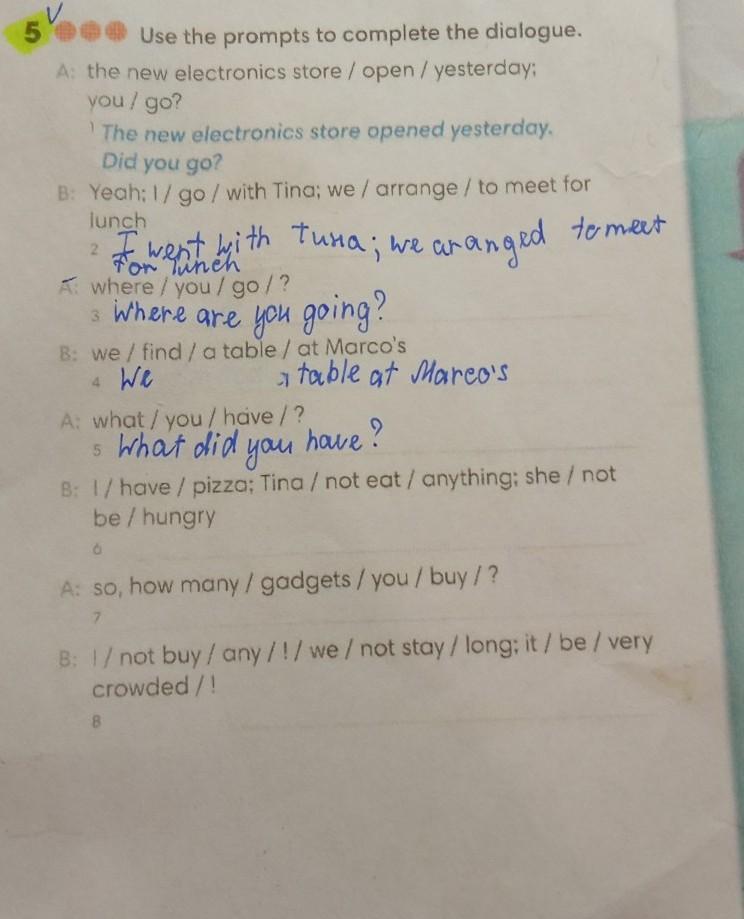 5 Use the prompts to complete the dialogue.
A: the new electronics store / open / yesterday;
you / go?
1 The new electronics store opened yesterday.
Did you go?
B: Yeah; I / go / with Tina; we / arrange / to meet for
lunch
2 I went with Tuna; we aranged to meet
for lunch
A: where / you / go / ?
3 Where are you going?
B: we / find / a table / at Marco's
4 We a table at Marco's
A: what / you / have / ?
5 What did you have?
B: I / have / pizza; Tina / not eat / anything; she / not
be / hungry
6
A: so, how many / gadgets / you / buy / ?
7
B: I / not buy / any / ! / we / not stay / long; it / be / very
crowded / !
8